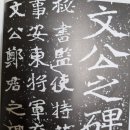 文公之碑
祕書監使持
事安東將軍
文公鄭君之